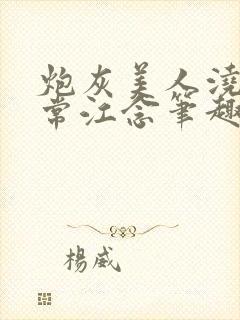 炮灰美人澆
常江念筆趣
楊威